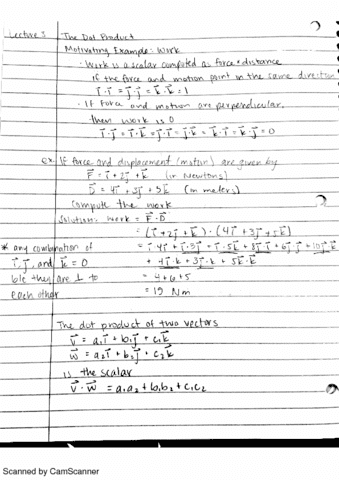 Lecture 3
The Dot Product
Motivating Example: Work
· Work is a scalar computed as force * distance
If the force and motion point in the same direction
i⃗·i⃗ = j⃗·j⃗ = k⃗·k⃗ = 1
· If force and motion are perpendicular,
then work is 0
i⃗·j⃗ = i⃗·k⃗ = j⃗·i⃗ = j⃗·k⃗ = k⃗·i⃗ = k⃗·j⃗ = 0
ex. If force and displacement (motion) are given by
F⃗ = i⃗ + 2j⃗ + k⃗ (in Newtons)
D⃗ = 4i⃗ + 3j⃗ + 5k⃗ (in meters)
compute the work
Solution: work = F⃗·D⃗
= (i⃗ + 2j⃗ + k⃗) · (4i⃗ + 3j⃗ + 5k⃗)
* any combination of
= i⃗·4i⃗ + i⃗·3j⃗ + i⃗·5k⃗ + 8j⃗·i⃗ + 6j⃗·j⃗ + 10j⃗·k⃗
i⃗, j⃗, and k⃗ = 0
+ 4i⃗·k + 3j⃗·k + 5k⃗·k⃗
b/c they are ⊥ to
= 4 + 6 + 5
each other
= 15 Nm
The dot product of two vectors
v⃗ = a₁i⃗ + b₁j⃗ + c₁k⃗
w⃗ = a₂i⃗ + b₂j⃗ + c₂k⃗
is the scalar
v⃗·w⃗ = a₁a₂ + b₁b₂ + c₁c₂
Scanned by CamScanner